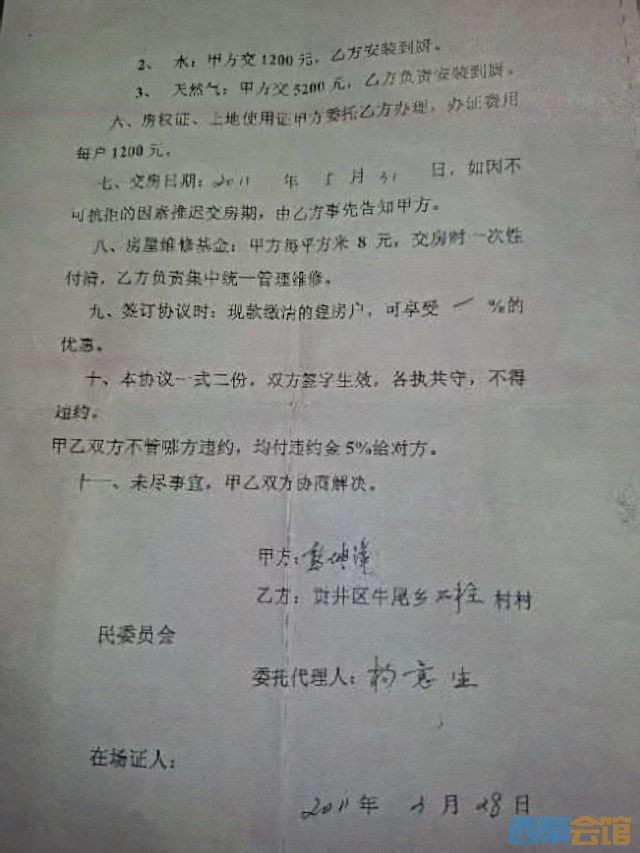 2、 水：甲方交1200元，乙方安装到厨。
3、 天然气：甲方交5200元，乙方负责安装到厨。
六、房权证、土地使用证甲方委托乙方办理，办证费用
每户1200元。
七、交房日期：2011 年 5 月 31 日，如因不
可抗拒的因素推迟交房期，由乙方事先告知甲方。
八、房屋维修基金：甲方每平方米 8 元，交房时一次性
付清，乙方负责集中统一管理维修。
九、签订协议时：现款缴清的建房户，可享受 %的
优惠。
十、本协议一式二份，双方签字生效，各执共守，不得
违约。
甲乙双方不管哪方违约，均付违约金5%给对方。
十一、未尽事宜，甲乙双方协商解决。
甲方：
乙方：贡井区牛尾乡 村村
民委员会
委托代理人：杨 生
在场证人：
2011年 3月 28日
西秦会馆